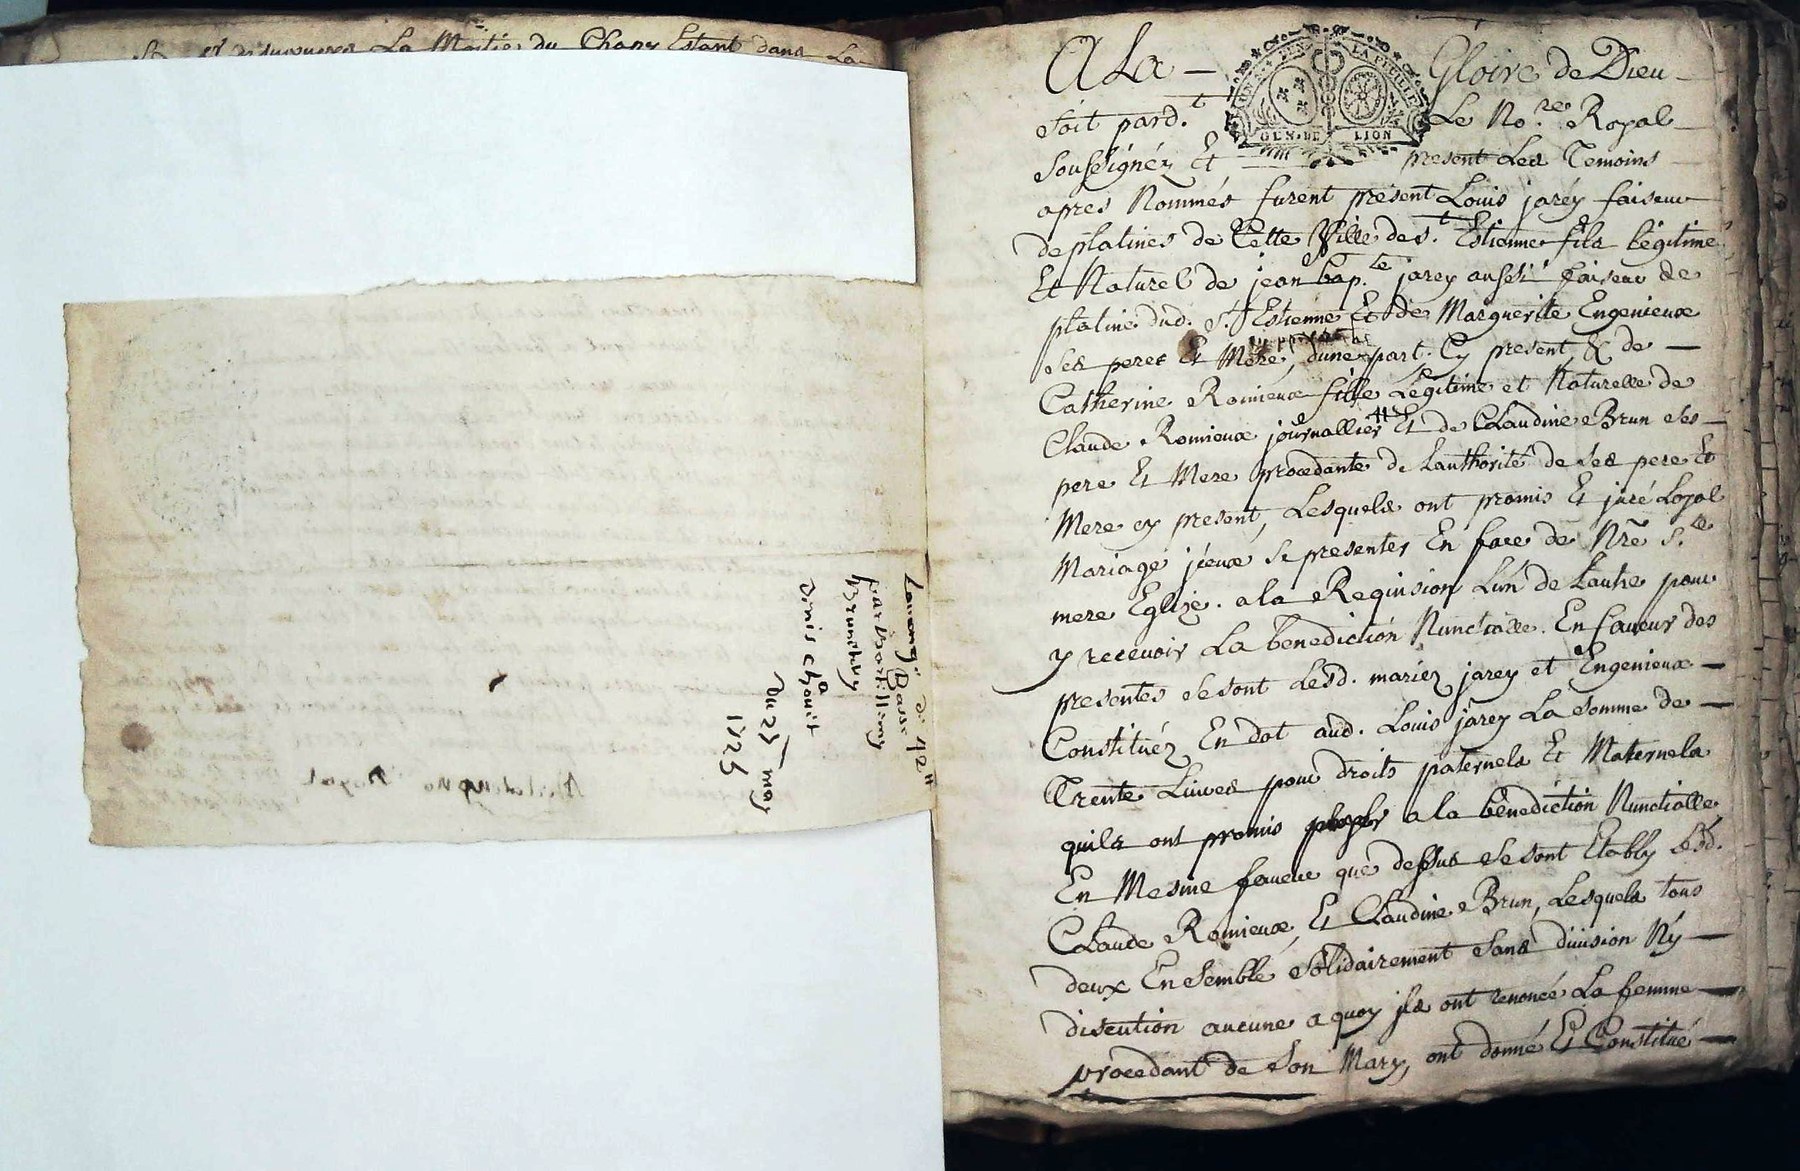 La Moitie du Champ Estant dans La
Laurengt di 42 tt
Basse
par bartellemy
Denis chovit
Du 25 may
1725
no Royal
A La — Gloire de Dieu —
GEN. DE LION
LA FEUILLE
Soit pard.t Le No.re Royal
Soussignéz Et — present Les Temoins —
apres Nommés furent présent Louis jaréy faiseur
de platines de Cette Ville de s.t Estienne fils légitime
Et Naturel de jean bap.te jarey aussi faiseur de
platine dud. S.t Estienne Et de Marguerite Engenieux
Ses peres Et Mere, dune part. Cy present, & de —
Catherine Romieux fille Légitime et Naturelle de
Claude Romieux journallier Et de CLaudine Brun ses —
pere Et Mere procedante de Lauthorité de ses pere Et
Mere cy present, Lesquels ont promis Et juré Loyal
Mariage jceux se presenter En face de Nrẽ S.te
mere Eglize. a la Requision Lun de Lautre pour
y recevoir La bénédiction Nunctialle. En faveur des
presentes se sont Lesd. mariez jarey et Engenieux —
Constituéz En dot aud. Louis jarey La somme de —
Trente Livres pour droits paternels Et Maternels
quils ont promis a la bénédiction Nunctialle
En Mesme faveur que dessus se sont Etably Lesd.
CLaude Romieux, Et CLaudine Brun, Lesquels tous
deux Ensemble solidairement sans division Ny —
discution aucune a quoy jls ont renoncé La femme —
procedant de son Mary, ont donné Et Constitué —